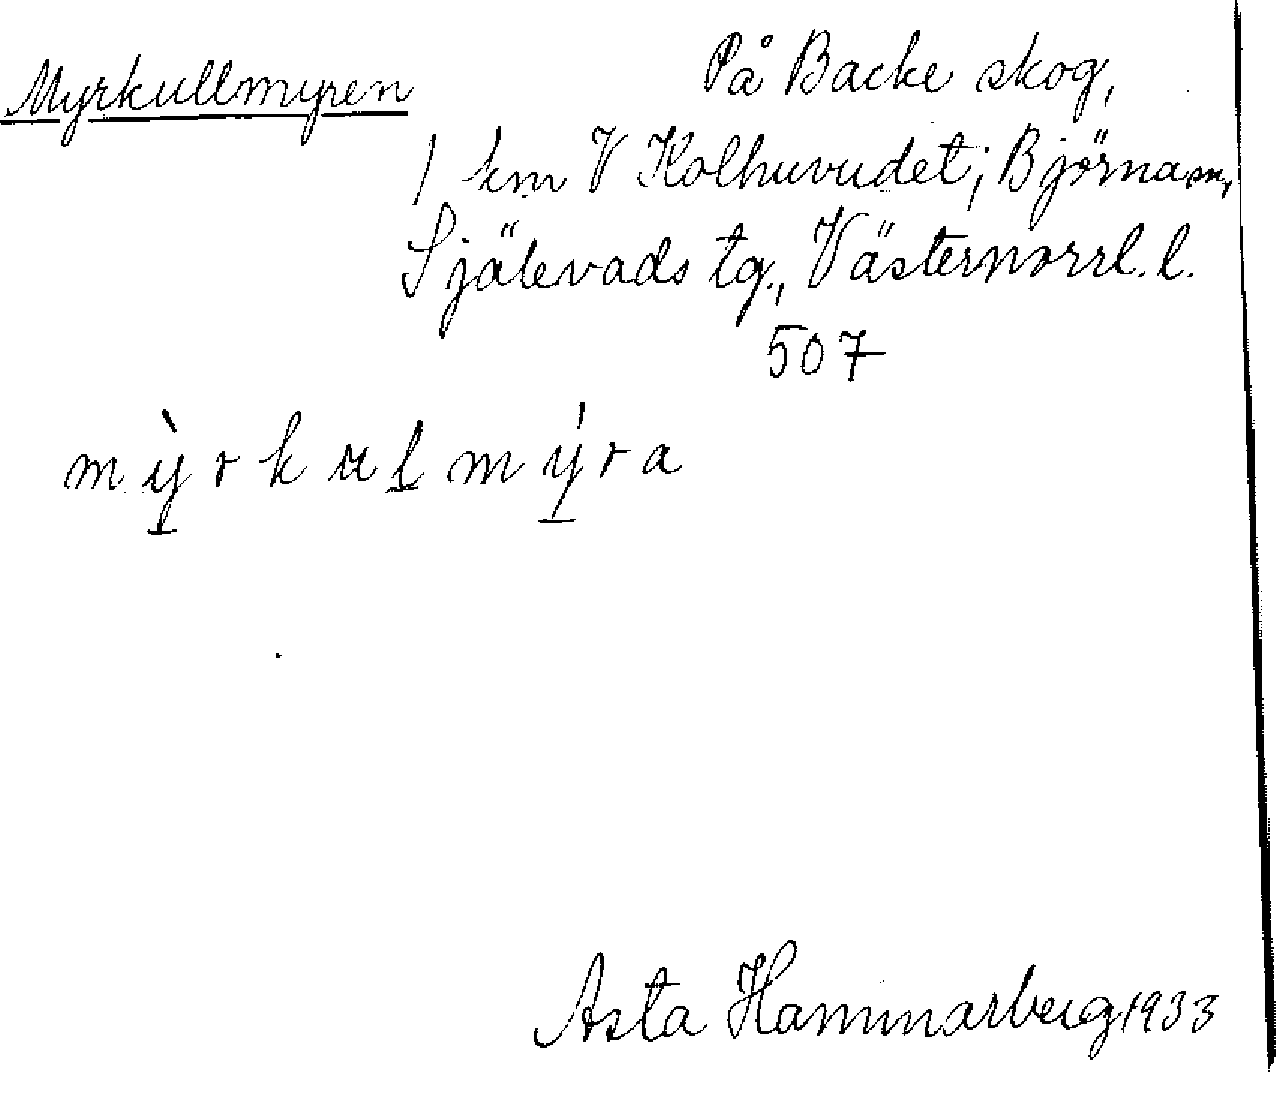 Myrkullmyren
På Backe skog,
1 km V Kolhuvudet; Björna sn,
Själevads tg., Västernorrl. l.
507
mỳrkulmýra
Asta Hammarberg 1933